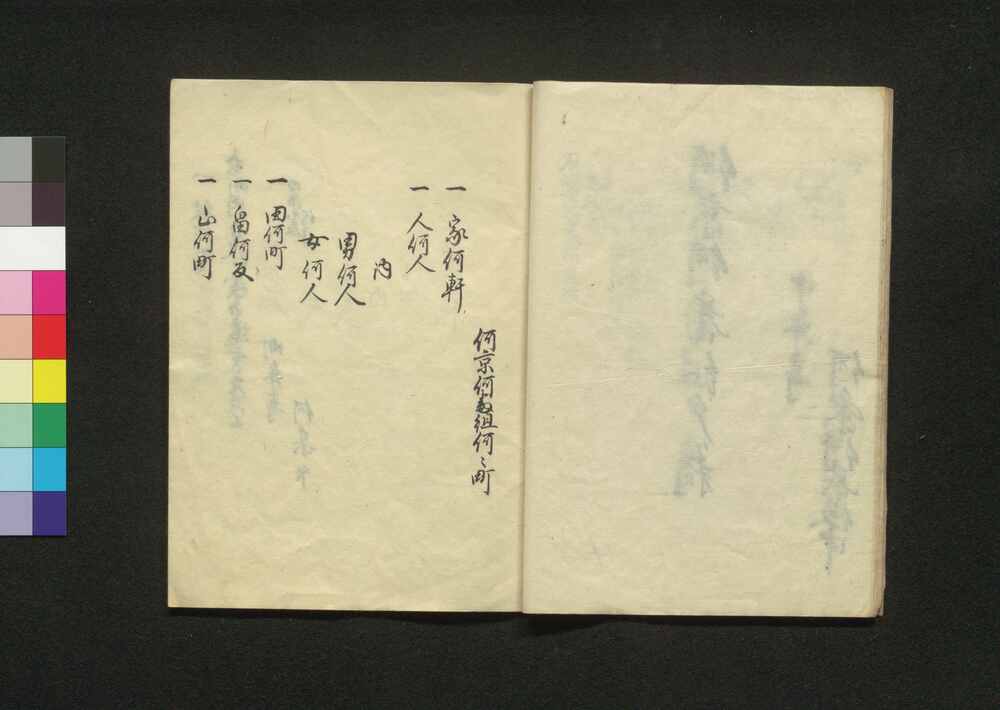 何京何番組何〻町
一 家何軒
一 人何人
内
男何人
女何人
一 田何町
一 畠何反
一 山何町